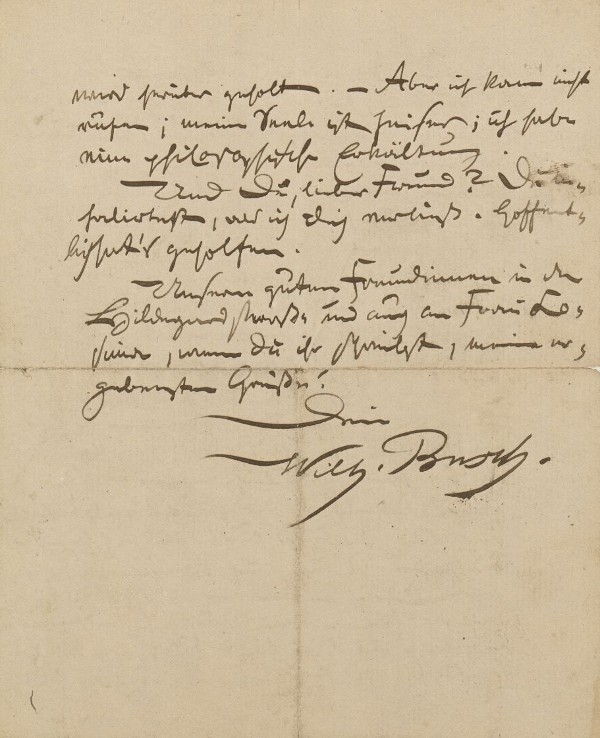 wird herüber geholt. – Aber ich kann nicht
rufen; meine Seele ist heiser; ich habe
eine philosophische Erkältung.
Und Du, lieber Freund? Du in-
halirtest, als ich Dich verließ. Hoffent-
lich hat's geholfen.
Unsern guten Freundinnen in der
Hildegardstraße und auch an Frau Le-
, wenn Du ihr schreibst, meine er-
gebensten Grüße!
Dein
Wilh. Busch.